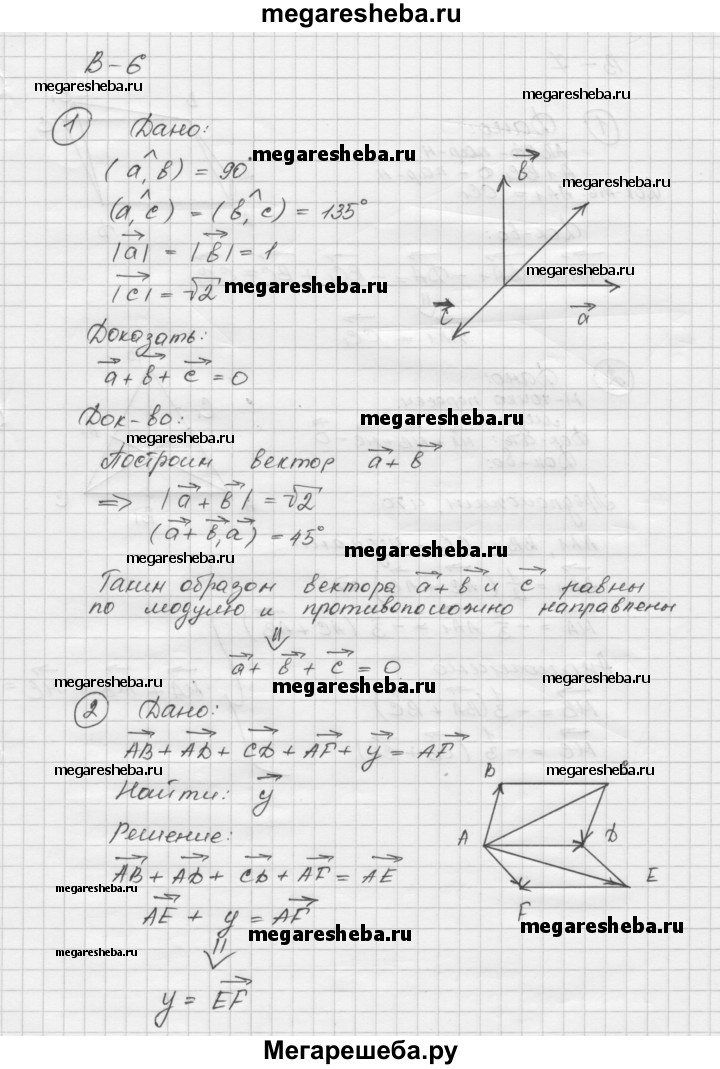 megaresheba.ru
В-6
megaresheba.ru
megaresheba.ru
① Дано:
(a, в) = 90° megaresheba.ru
megaresheba.ru
в
(a, c) = (в, c) = 135°
|a| = |в| = 1
megaresheba.ru
|c| = √2 megaresheba.ru
c
a
Доказать:
a + в + c = 0
Док-во:
megaresheba.ru
megaresheba.ru
Построим вектор a + в
megaresheba.ru
=> |a + в| = √2
(a + в, a) = 45°
megaresheba.ru
megaresheba.ru
Таким образом вектора a + в и c равны
по модулю и противоположно направлены
a + в + c = 0
megaresheba.ru
megaresheba.ru
megaresheba.ru
② Дано:
AB + AD + CD + AF + y = AF
megaresheba.ru
B
megaresheba.ru
Найти: y
Решение:
A
D
AB + AD + CD + AF = AE
E
megaresheba.ru
AE + y = AF
F
megaresheba.ru
megaresheba.ru
megaresheba.ru
y = EF
Мегарешеба.ру